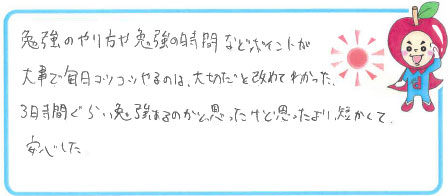 勉強のやり方や勉強の時間などポイントが
大事で毎日コツコツやるのは、大切だと改めてわかった。
3時間ぐらい勉強するのかと思ったけど思ったより短かくて、
安心した